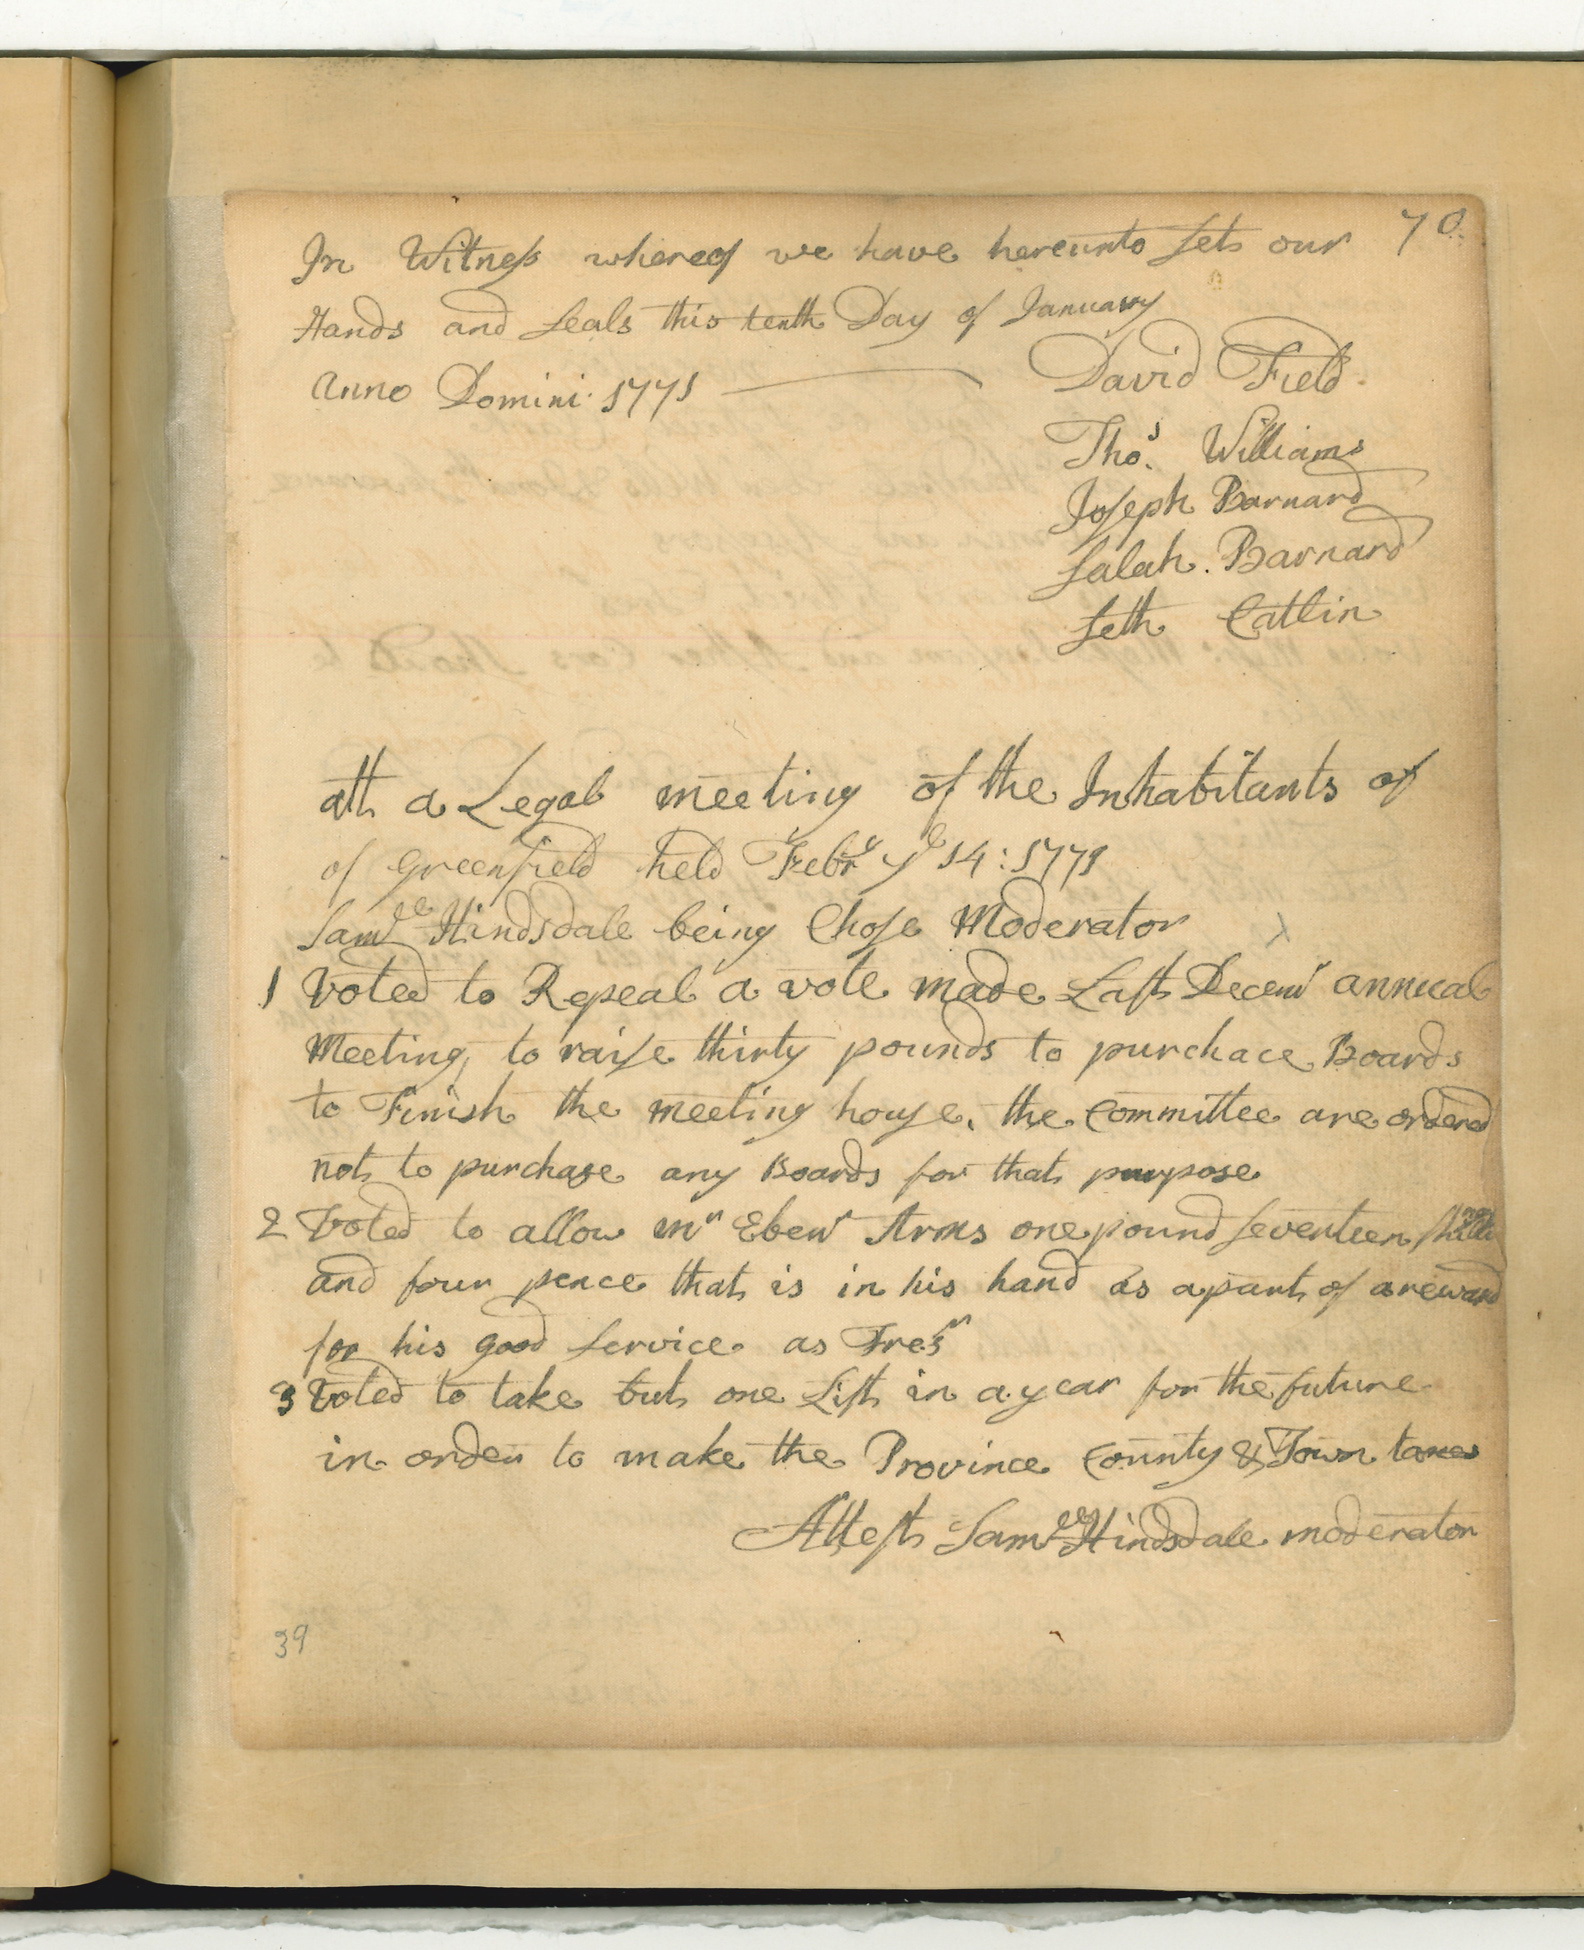 70
In Witness whereof we have hereunto Sets our
Hands and Seals this tenth Day of January
Anno Domini 1771
David Field
Thos. Williams
Joseph Barnard
Salah. Barnard
Seth Catlin
att a Legal meeting of the Inhabitants of
of Greenfield held Febry ye 14: 1771
Samll Hindsdale being Chose Moderator
1 Voted to Repeal a vote made Last Decemr annual
Meeting, to raise thirty pounds to purchace Boards
to Finish the meeting house, the Committee are ordered
not to purchase any Boards for that purpose
2 Voted to allow mr Ebenr Arms one pound Seventeen
and four pence that is in his hand as apart of areward
for his good Service as Tresr
3 Voted to take but one List in a year for the future
in order to make the Province County & Town taxes
Attest Samll Hindsdale moderator
39